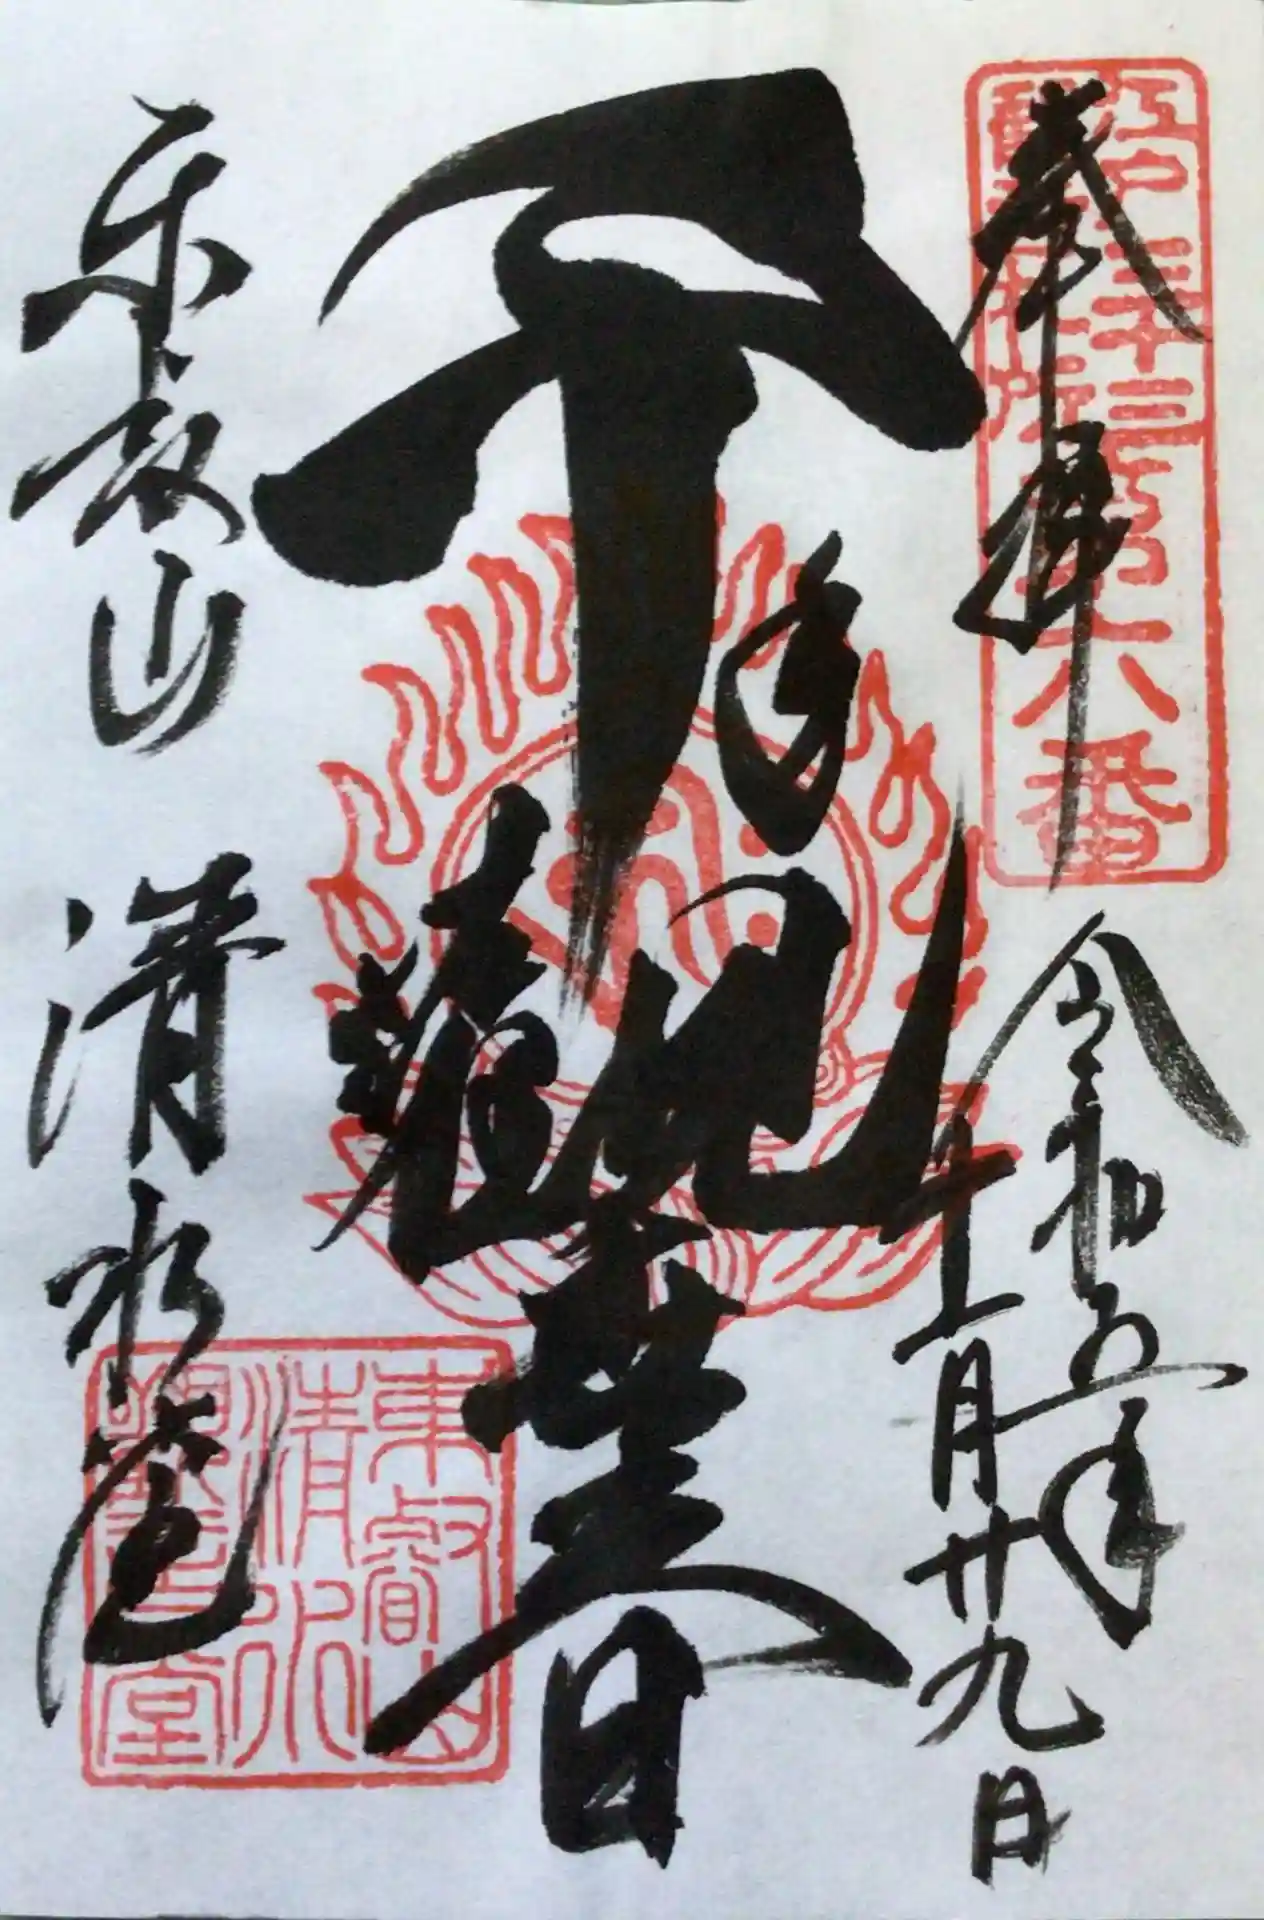 江戸三十三
観音札所
第六番
奉拝
令和五年
十一月廿九日
千手觀世音
東叡山 清水堂
東叡山
清水
觀音堂